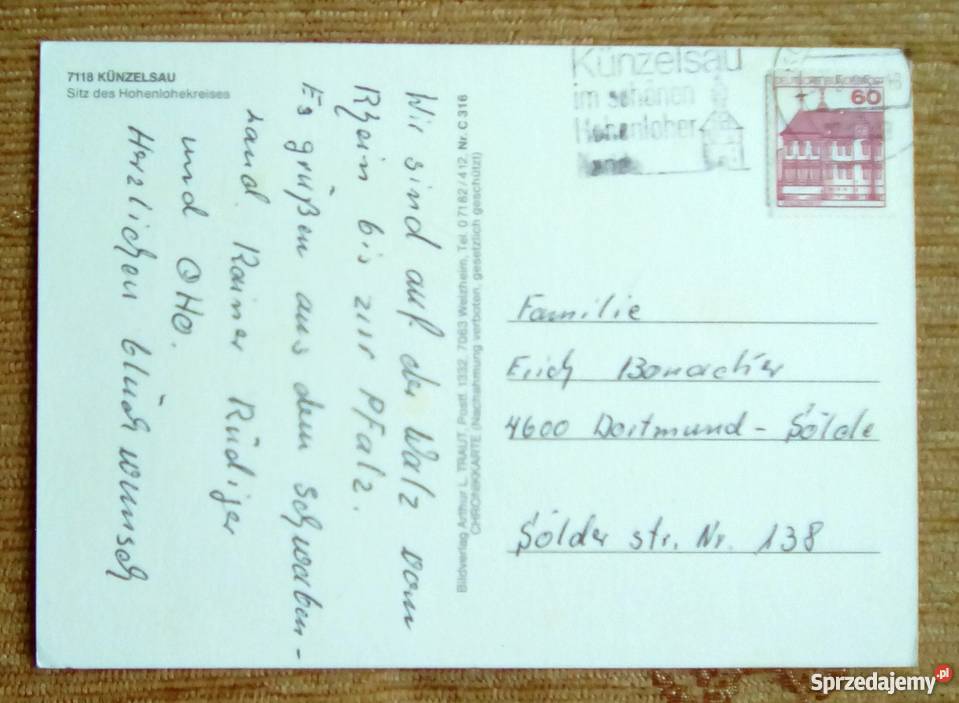 7118 KÜNZELSAU
Sitz des Hohenlohekreises
Wir sind auf der Walz vom
Rhein bis zur Pfalz.
Es grüßen aus dem Schwaben-
land. Rainer Rüdiger
und Otto.
Herzlichen Glückwunsch
Bildverlag Arthur L. TRAUT, Postf. 1332, 7063 Welzheim, Tel. 07182/412, Nr. C 316
CHRONIKKARTE (Nachahmung verboten, gesetzlich geschützt)
Künzelsau
im schönen
Hohenloher
Land
60
Familie
Erich
4600 Dortmund - Sölde
Sölder str. Nr. 138
Sprzedajemy.pl